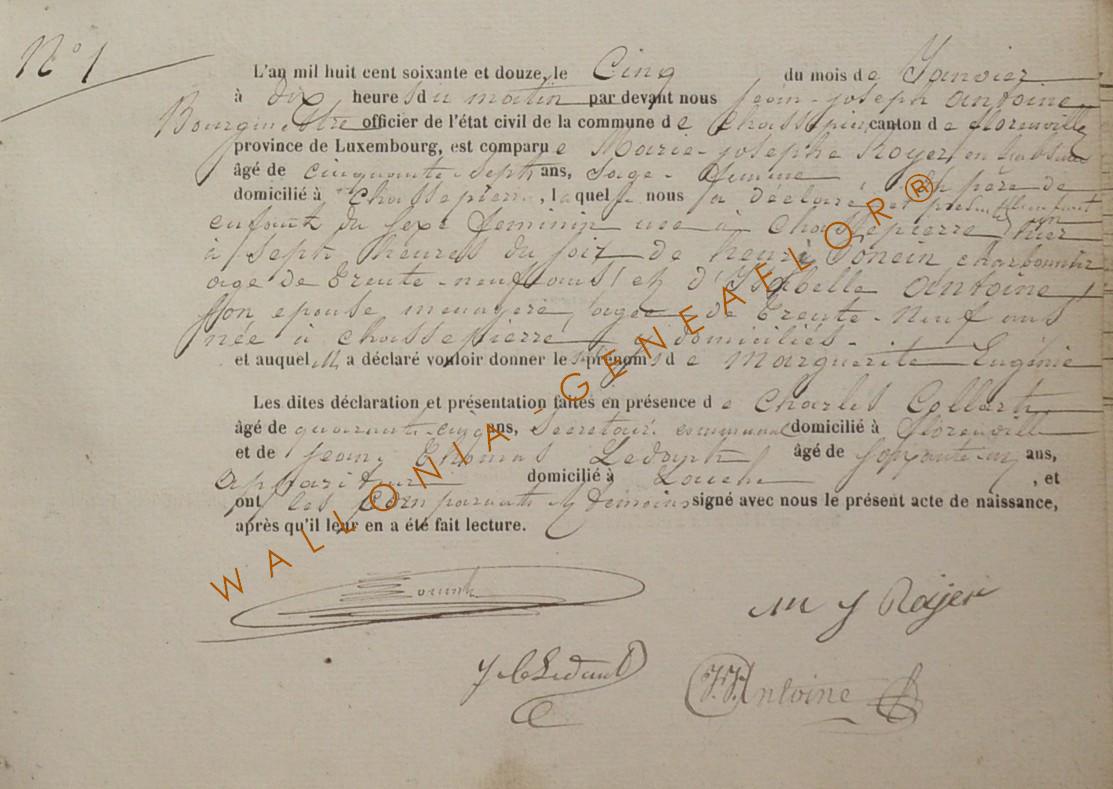 N° 1
L'an mil huit cent soixante et douze, le Cinq du mois de Janvier
à dix heures du matin par devant nous jean-joseph antoine
Bourgmestre officier de l'état civil de la commune de Chassepierre canton de florenville
province de Luxembourg, est comparue Marie-josephe Royer en l'absence
âgé de cinquante-sept ans, sage-femme du père de
domicilié à Chassepierre, laquelle nous a déclaré et présenté
enfant du sexe feminin née à Chassepierre hier
à sept heures du soir de henri charbonnier
age de trente-neuf ans et d'Isabelle antoine
son epouse menagere, agee de trente-neuf ans
née à chassepierre y domiciliés.
et auquel il a déclaré vouloir donner les prénoms de Marguerite Eugénie
Les dites déclaration et présentation faites en présence de Charles Collart
âgé de quarante-cinq ans, Secretaire communal domicilié à florenville
et de jean, Thomas Ledent âgé de ans,
domicilié à , et
ont les Comparants & temoins signé avec nous le présent acte de naissance,
après qu'il leur en a été fait lecture.
M J Roijer
J.J. Antoine
WALLONIA-GENEAFLOR®